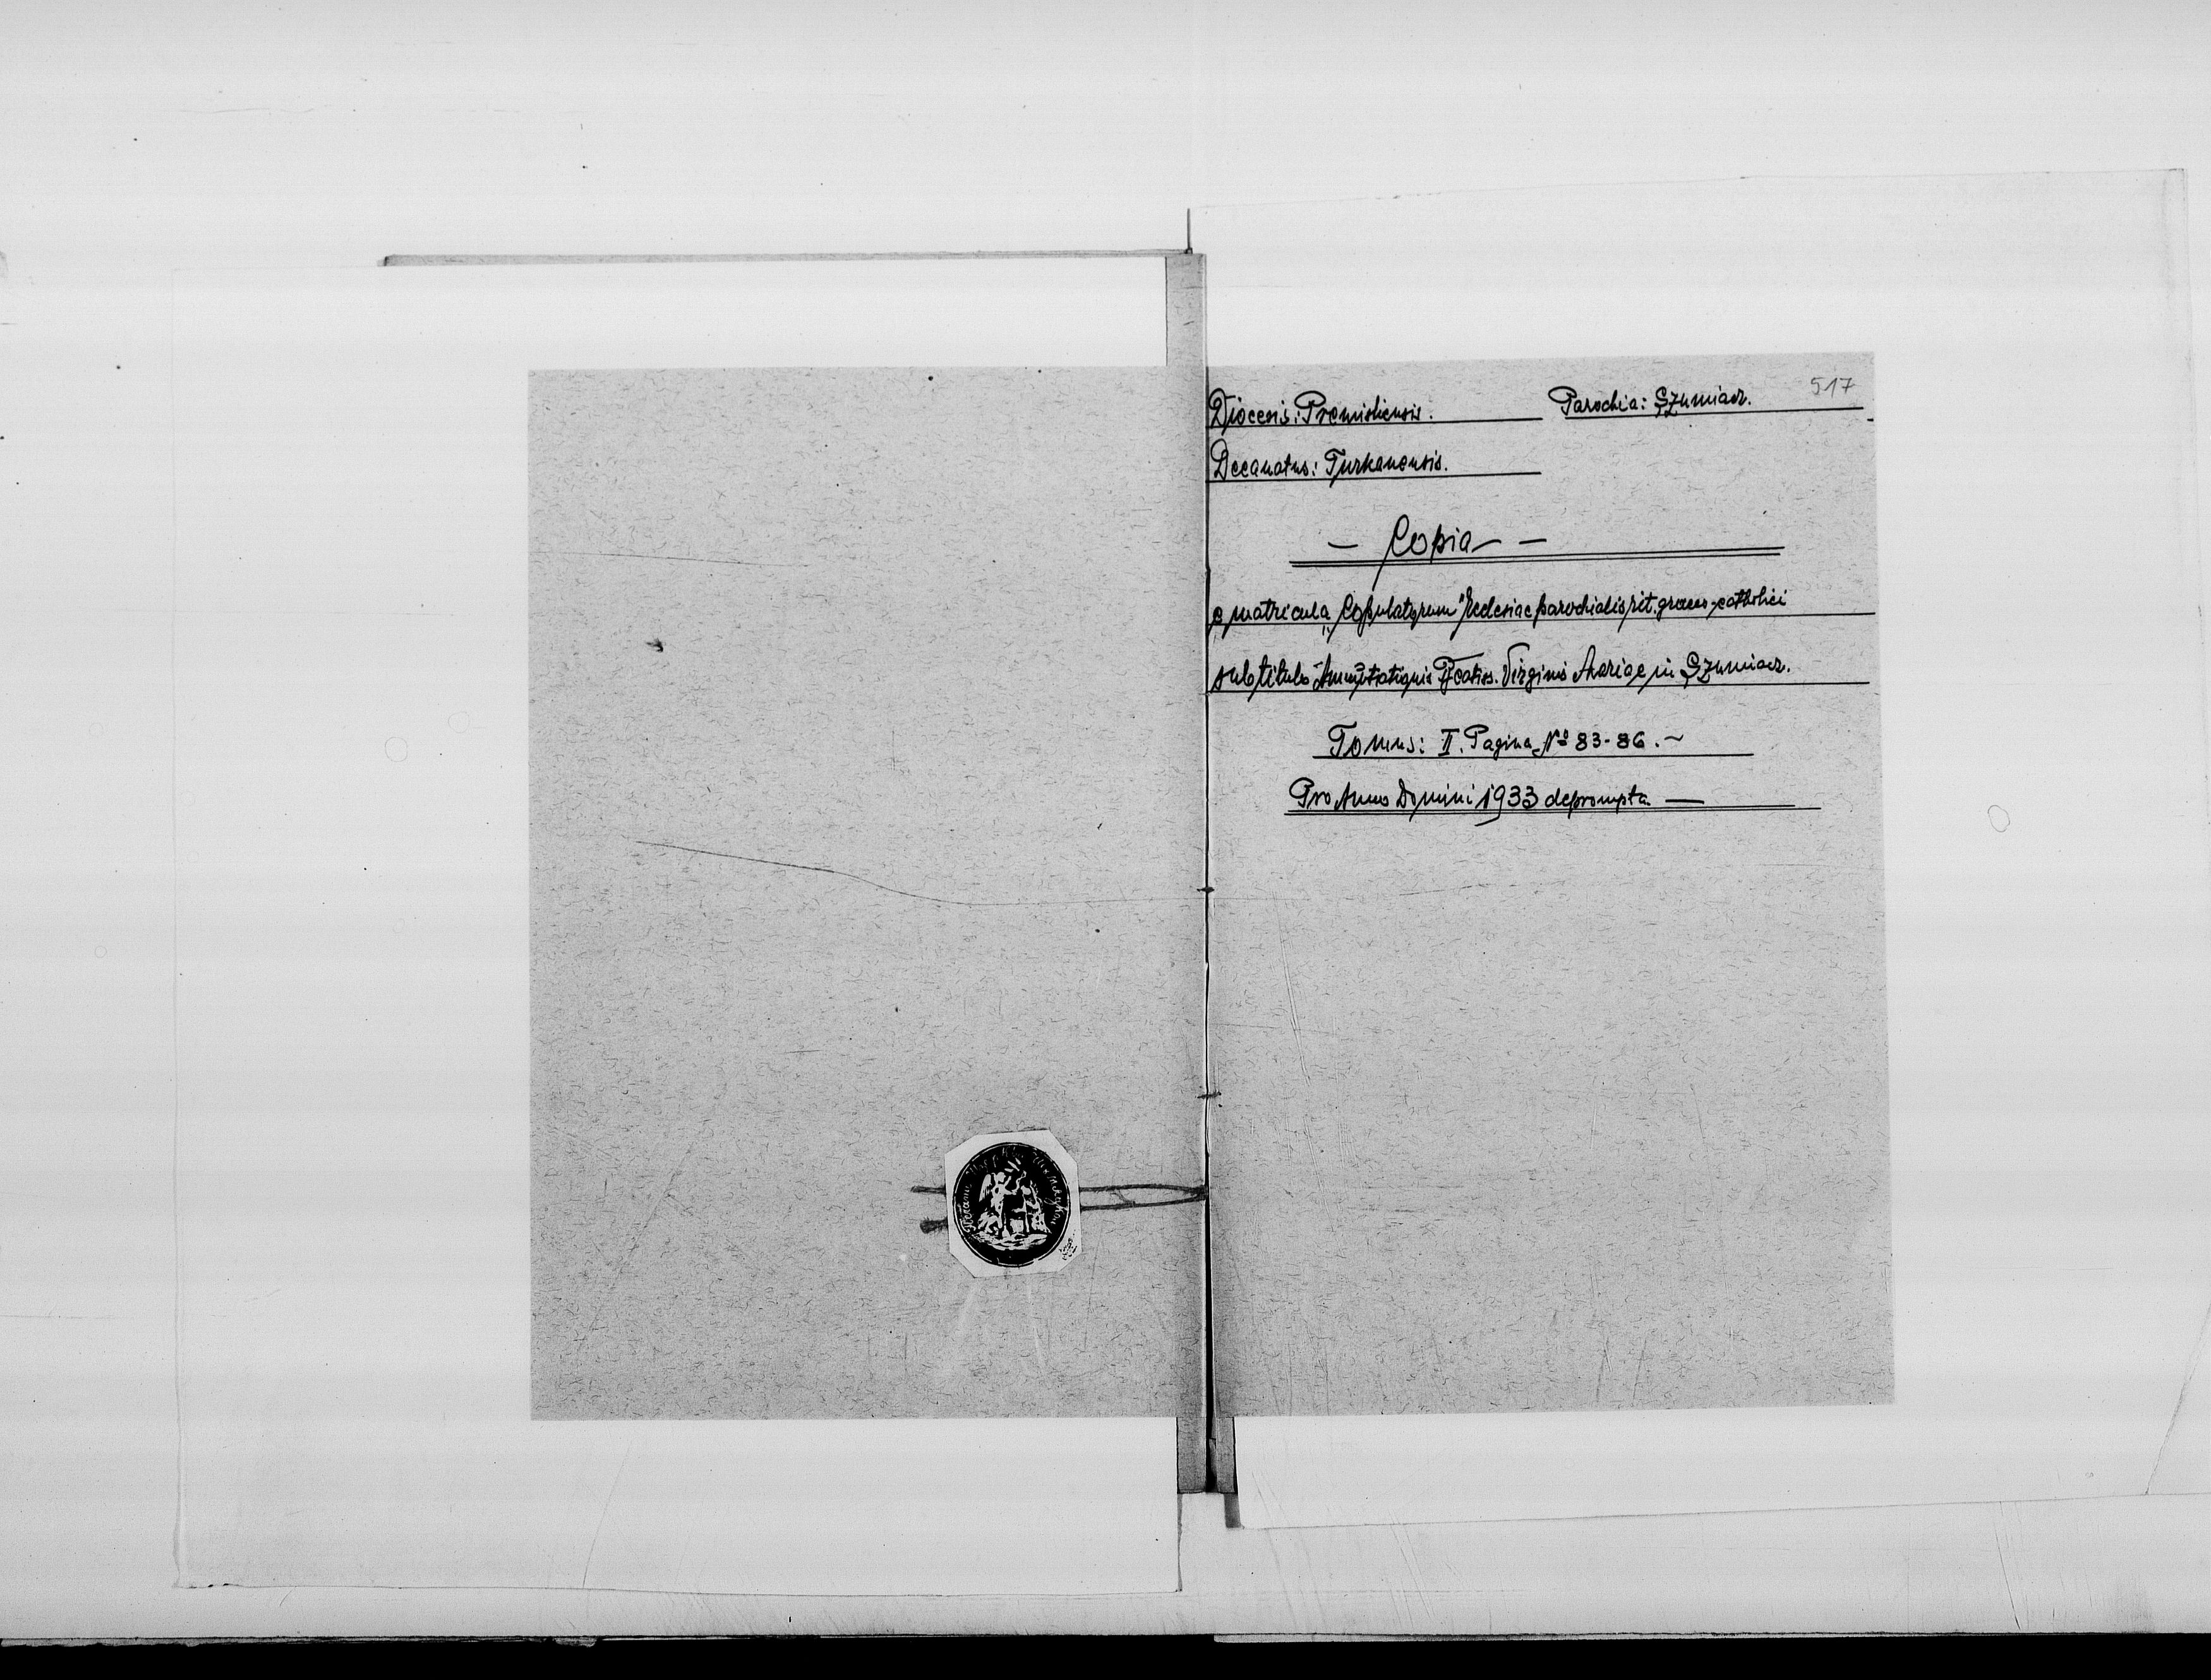 517
Diocesis: Premisliensis. Parochia: Szumiacz.
Decanatus: Turkanensis.
— Copia —
e matricula „Copulatorum" Ecclesiae parochialis rit. graeco-catholici
sub titulo Annuntiationis Beatiss. Virginis Mariae in Szumiacz.
Tomus: II. Pagina Nº 83-86. ~
Pro Anno Domini 1933 deprompta. —